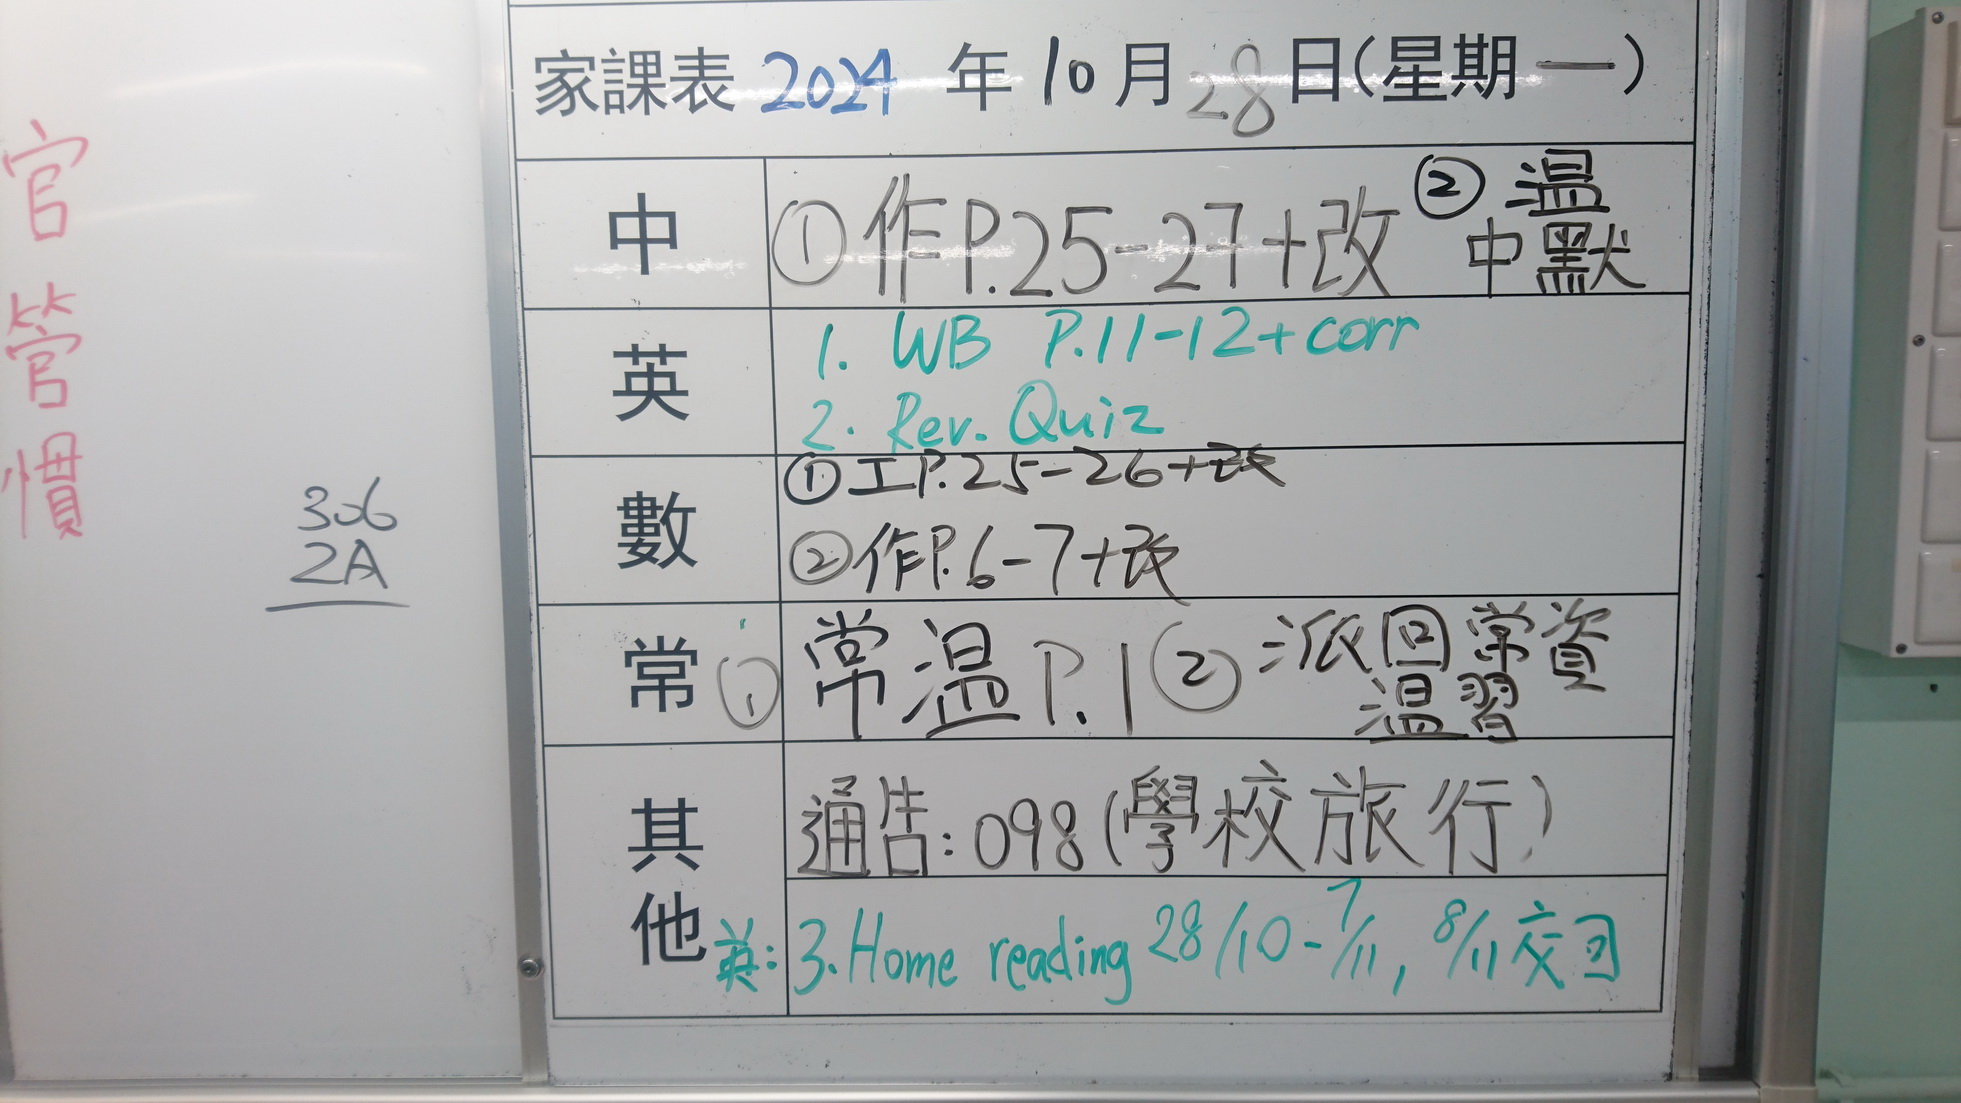 官
管
慣
306
2A
家課表 2024 年 10 月 28 日(星期一)
中
①作P.25-27+改 ②溫
中默
英
1. WB P.11-12+corr
2. Rev. Quiz
數
①工P.25-26+改
②作P.6-7+改
常
① 常溫P.1 ②派回常資
溫習
其
他
通告:098(學校旅行)
英: 3.Home reading 28/10-7/11, 8/11交回